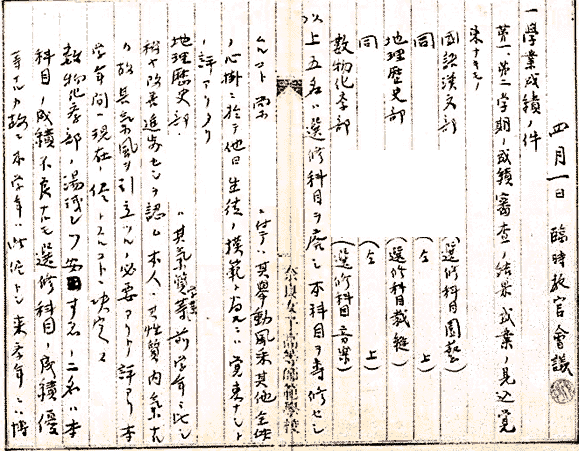 四月一日 臨時教官會議
一學業成績ノ件
第一、第二學期ノ成績審査ノ結果成業ノ見込覚
束ナキモノ
國語漢文部 (選修科目園藝)
同 (仝 上)
地理歴史部 (選修科目裁縫)
同 (仝 上)
数物化学部 (選修科目音樂)
以上五名ハ選修科目ヲ廃シ本科目ヲ専修セシ
ムルコト
奈良女子高等師範學校
ニ付テハ其擧動風采其他全体
ノ心掛ニ於テ他日生徒ノ模範タルニハ覚束ナシト
ノ評アリタリ
地理歴史部 ハ其氣質等前学年ニ比シ
稍々改善進歩セシヲ認ム本人ハ性質内気ナル
ヲ故其気風ヲ引立ツル必要アリト評アリ本
学年間ハ現在ノ侭トスルコトニ決定ス
数物化学部ノ湯浅シヅ 二名ハ本
科目ノ成績不良ナルモ選修科目ノ成績優
等ナルヲ故ニ本学年ハ此侭トシ来学年ニハ博